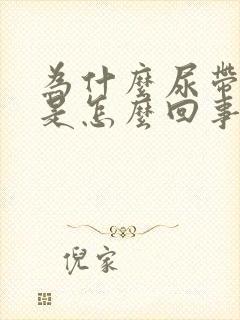 為什麼尿帶
是怎麼回事
倪家